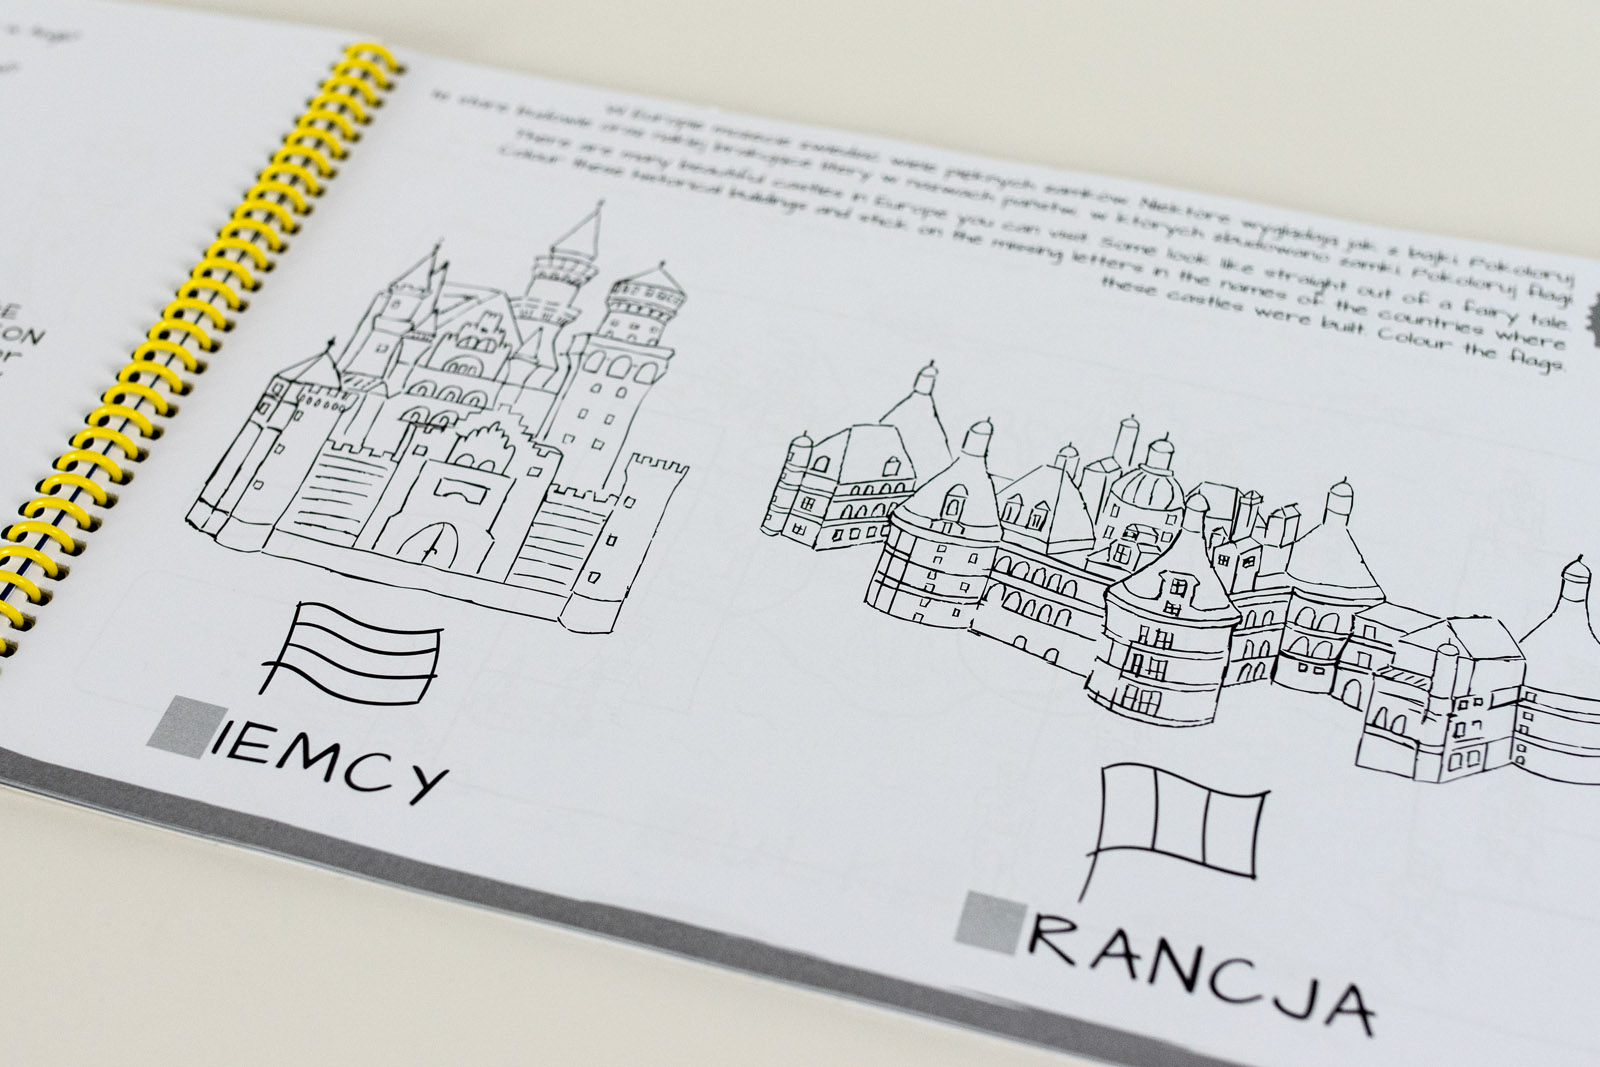 RE
ION
er
W Europie możecie zwiedzić wiele pięknych zamków. Niektóre wyglądają jak z bajki. Pokoloruj
te stare budowle oraz naklej brakujące litery w nazwach państw, w których zbudowano zamki. Pokoloruj flagi.
There are many beautiful castles in Europe you can visit. Some look like straight out of a fairy tale.
Colour these historical buildings and stick on the missing letters in the names of the countries where
these castles were built. Colour the flags.
IEMCY
RANCJA